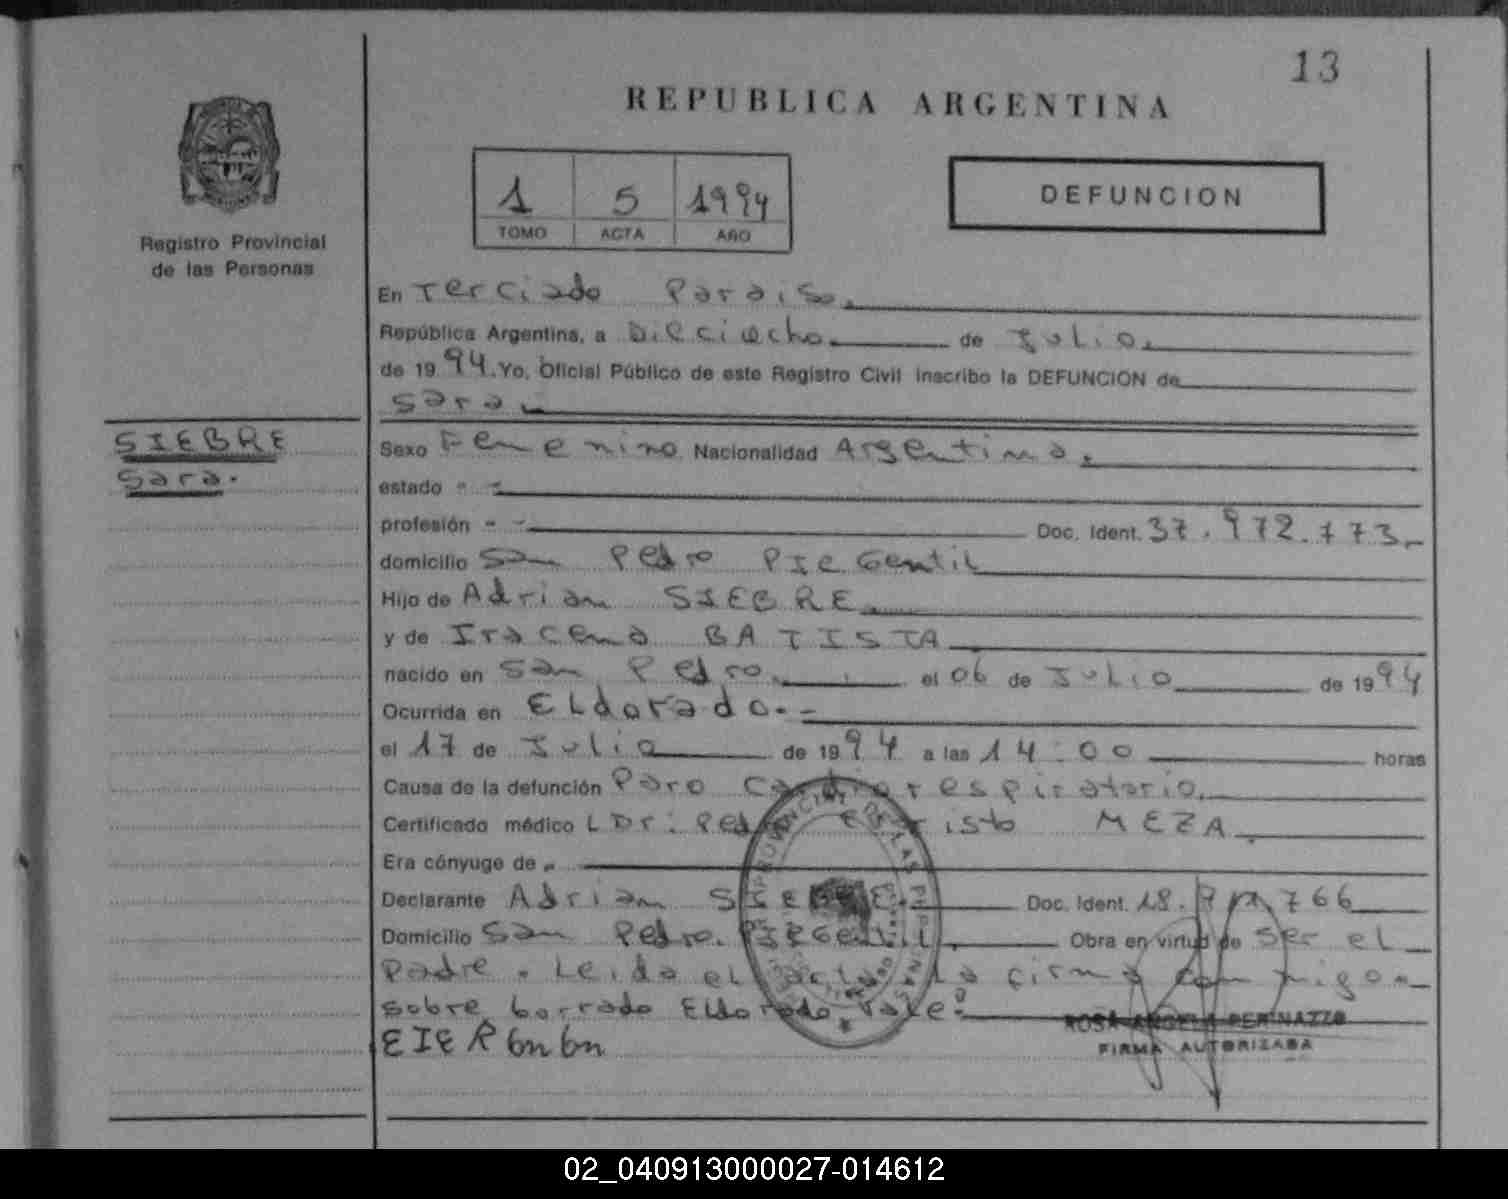 13
REPUBLICA ARGENTINA
1 5 1994
TOMO ACTA AÑO
DEFUNCION
Registro Provincial
de las Personas
En Terciado Paraiso.
República Argentina, a Dieciocho de Julio.
de 1994. Yo, Oficial Público de este Registro Civil inscribo la DEFUNCION de
Sara
SIEBRE
Sara.
Sexo Femenino Nacionalidad Argentina.
estado - -
profesión - - Doc. Ident. 37.972.773.
domicilio San Pedro PIe Gentil
Hijo de Adrian SIEBRE.
y de Iracema BATISTA
nacido en San Pedro. el 06 de Julio de 1994
Ocurrida en ELdorado.-
el 17 de Julio de 1994 a las 14:00 horas
Causa de la defunción Paro Cardiorespiratorio.
Certificado médico Dr: Pedro MEZA
Era cónyuge de
Declarante Adrian SIEBRE. Doc. Ident. 766
Domicilio San Pedro. PIeGentil. Obra en virtud de Ser el
Padre. Leida el acta la firma conmigo.
sobre borrado Eldorado Vale:
ROSA ANGELA PERINAZZO
FIRMA AUTORIZADA
02_040913000027-014612